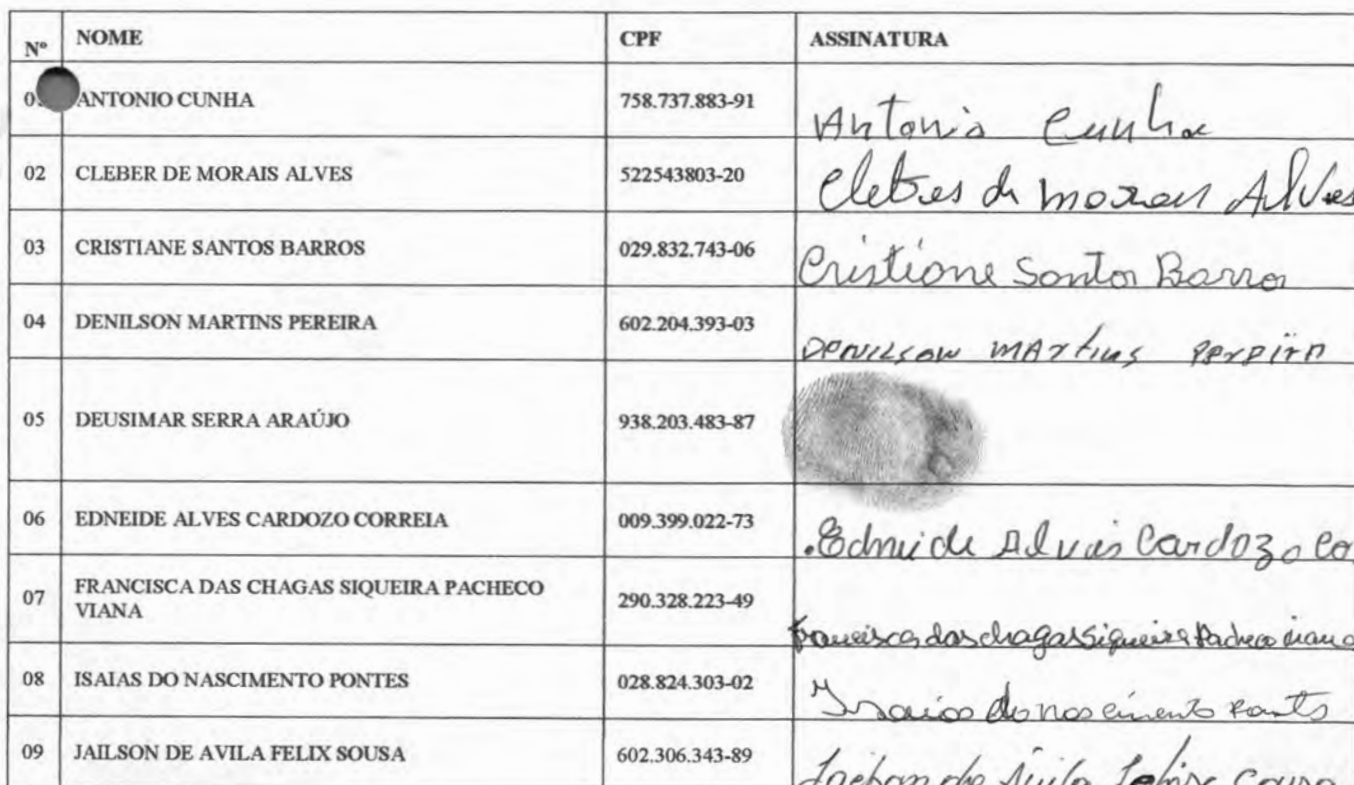 Nº NOME CPF ASSINATURA
ANTONIO CUNHA 758.737.883-91 Antonio Cunha
02 CLEBER DE MORAIS ALVES 522543803-20 Clebes de morais Alves
03 CRISTIANE SANTOS BARROS 029.832.743-06 Cristiane Santos Barros
04 DENILSON MARTINS PEREIRA 602.204.393-03 DENILSON MARTINS PEREIRA
05 DEUSIMAR SERRA ARAÚJO 938.203.483-87
06 EDNEIDE ALVES CARDOZO CORREIA 009.399.022-73 Edneide Alves Cardozo Co
07 FRANCISCA DAS CHAGAS SIQUEIRA PACHECO
VIANA 290.328.223-49 francisca das chagas Siqueira Pacheco viana
08 ISAIAS DO NASCIMENTO PONTES 028.824.303-02 Isaias do nascimento Ponts
09 JAILSON DE AVILA FELIX SOUSA 602.306.343-89